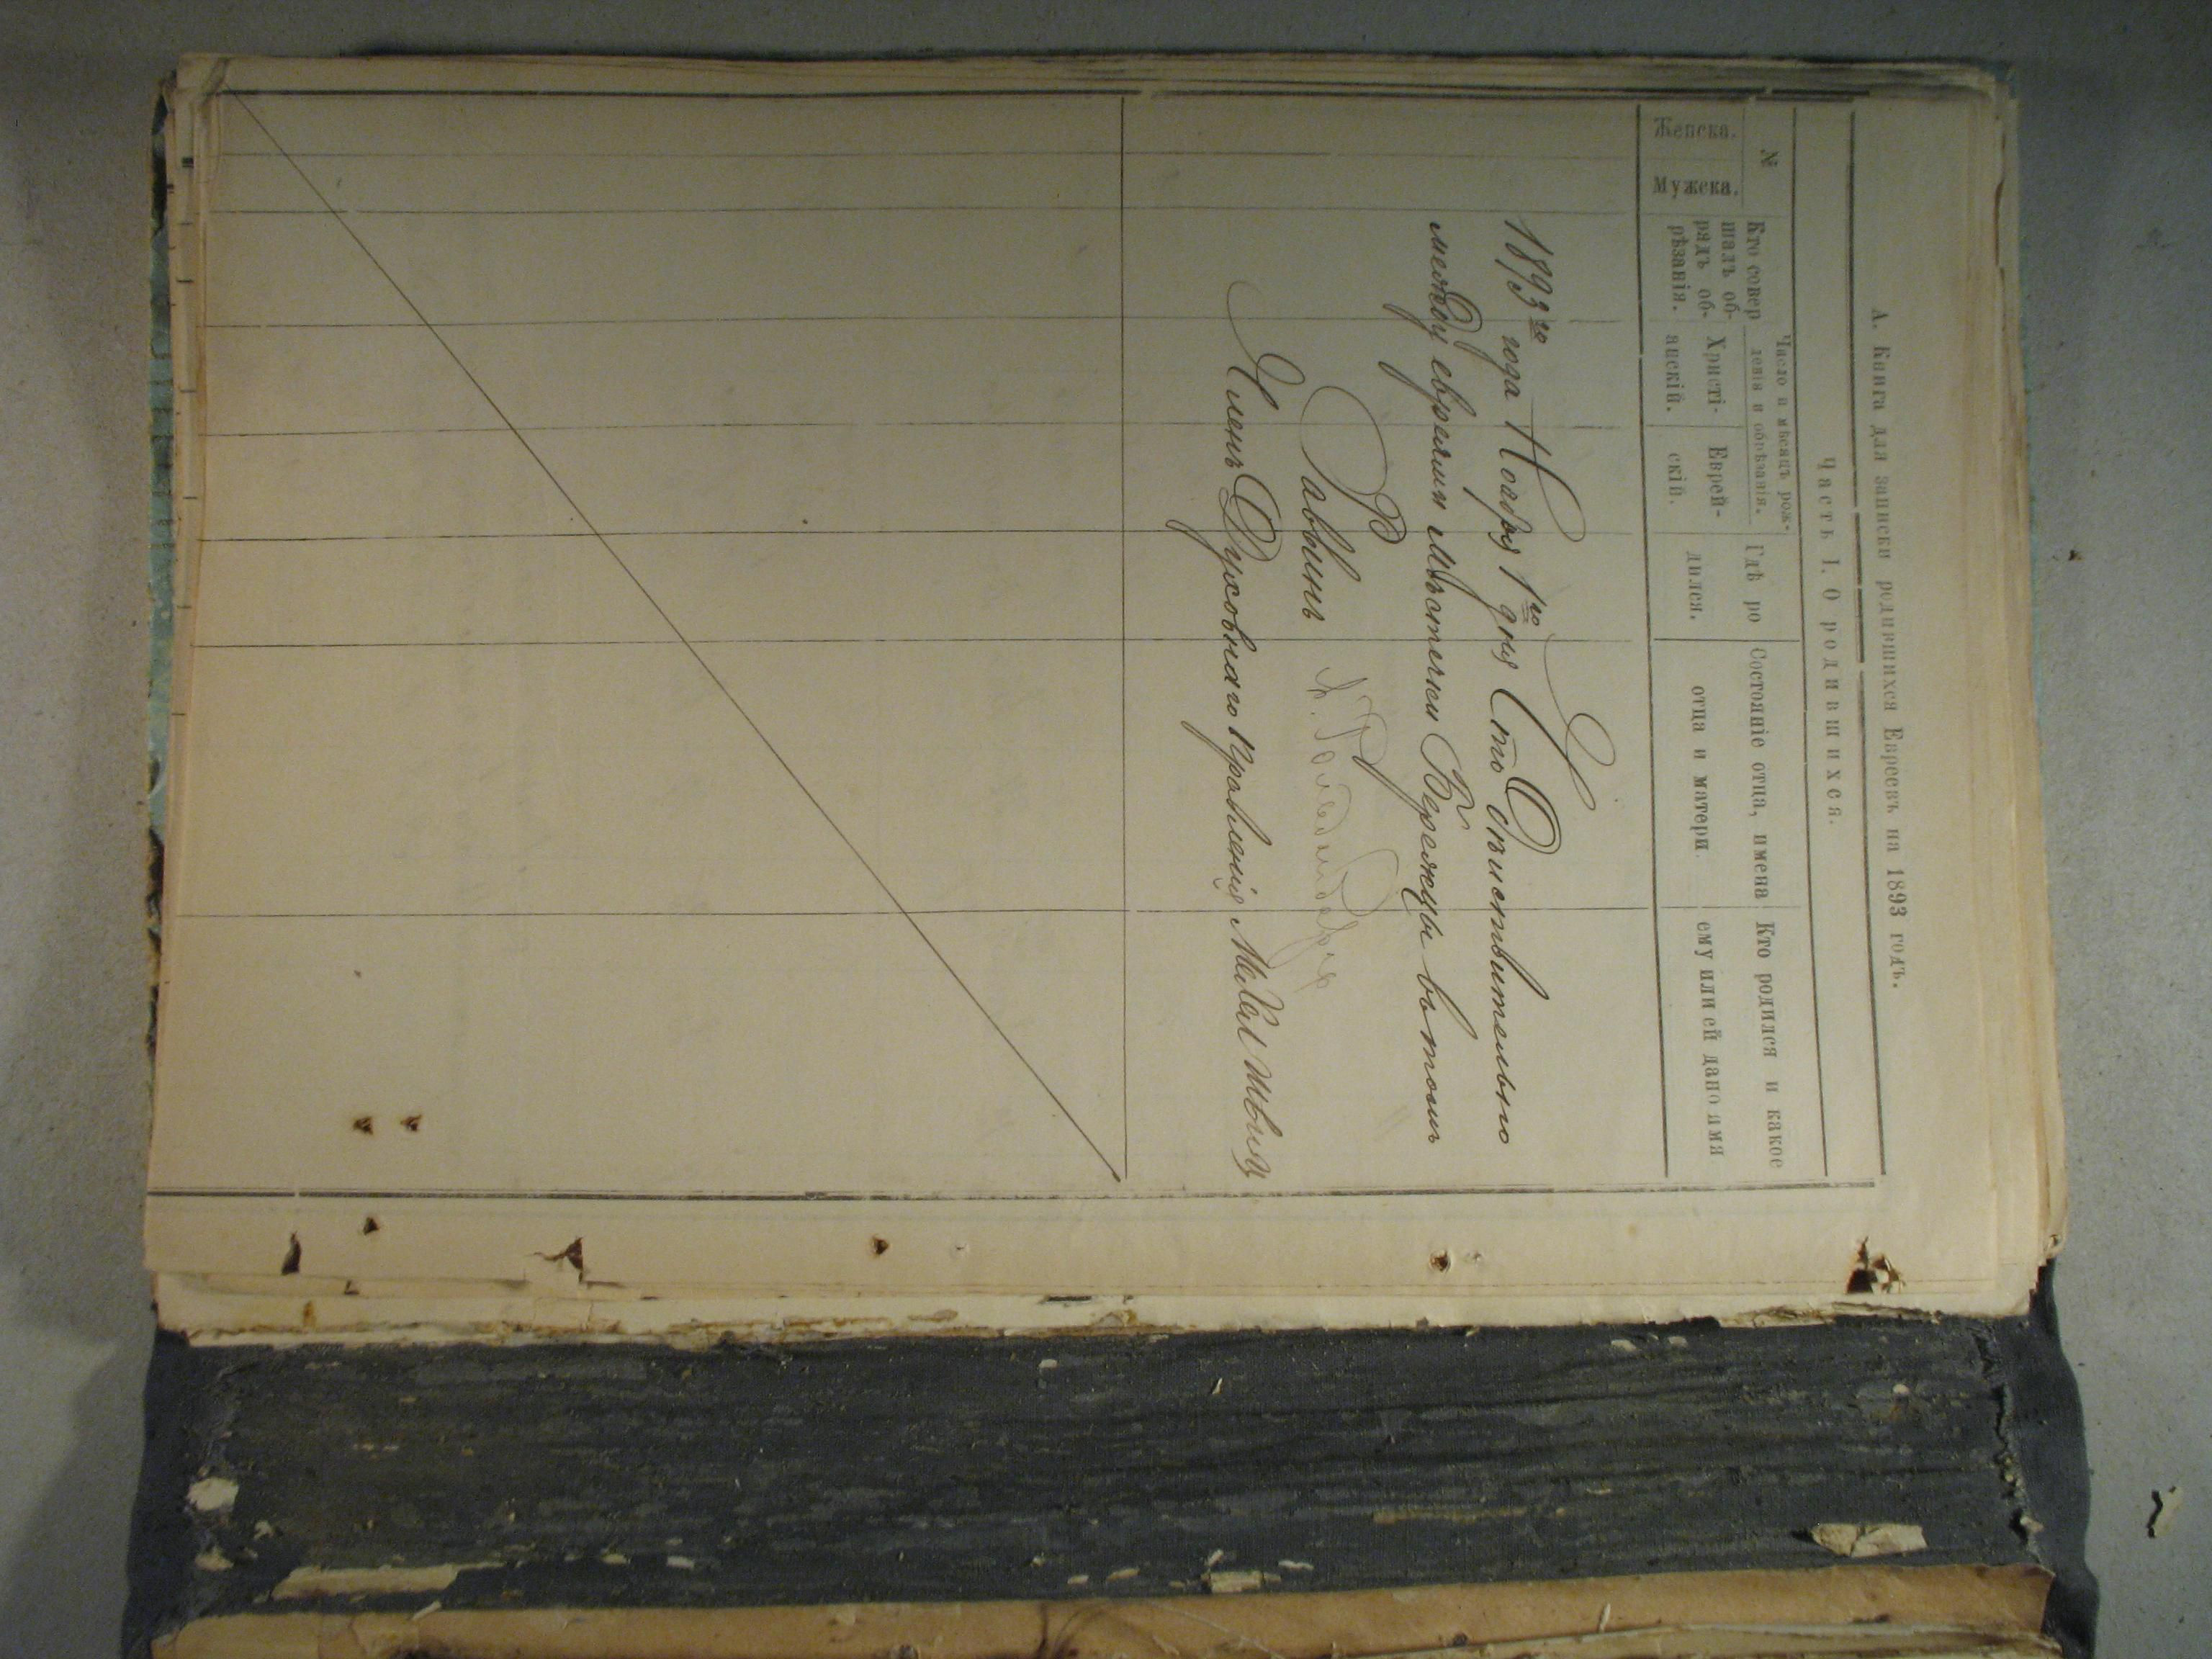 А. Книга для записки родившихся Евреевъ на 1893 годъ.
Часть I. О родившихся.
№
Женска.
Мужска.
Кто совер
шалъ об-
рядъ об-
рѣзанія.
Число и мѣсяцъ рож-
денія и обрѣзанія.
Христі-
анскій.
Еврей-
скій.
Гдѣ ро
дился.
Состояніе отца, имена
отца и матери.
Кто родился и какое
ему или ей дано имя
1893го года Ноября 1го дня Что Дѣиствительно
между евреями мѣстечки Бережцы въ томъ
Раввинъ
Членъ Духовнаго Правленія